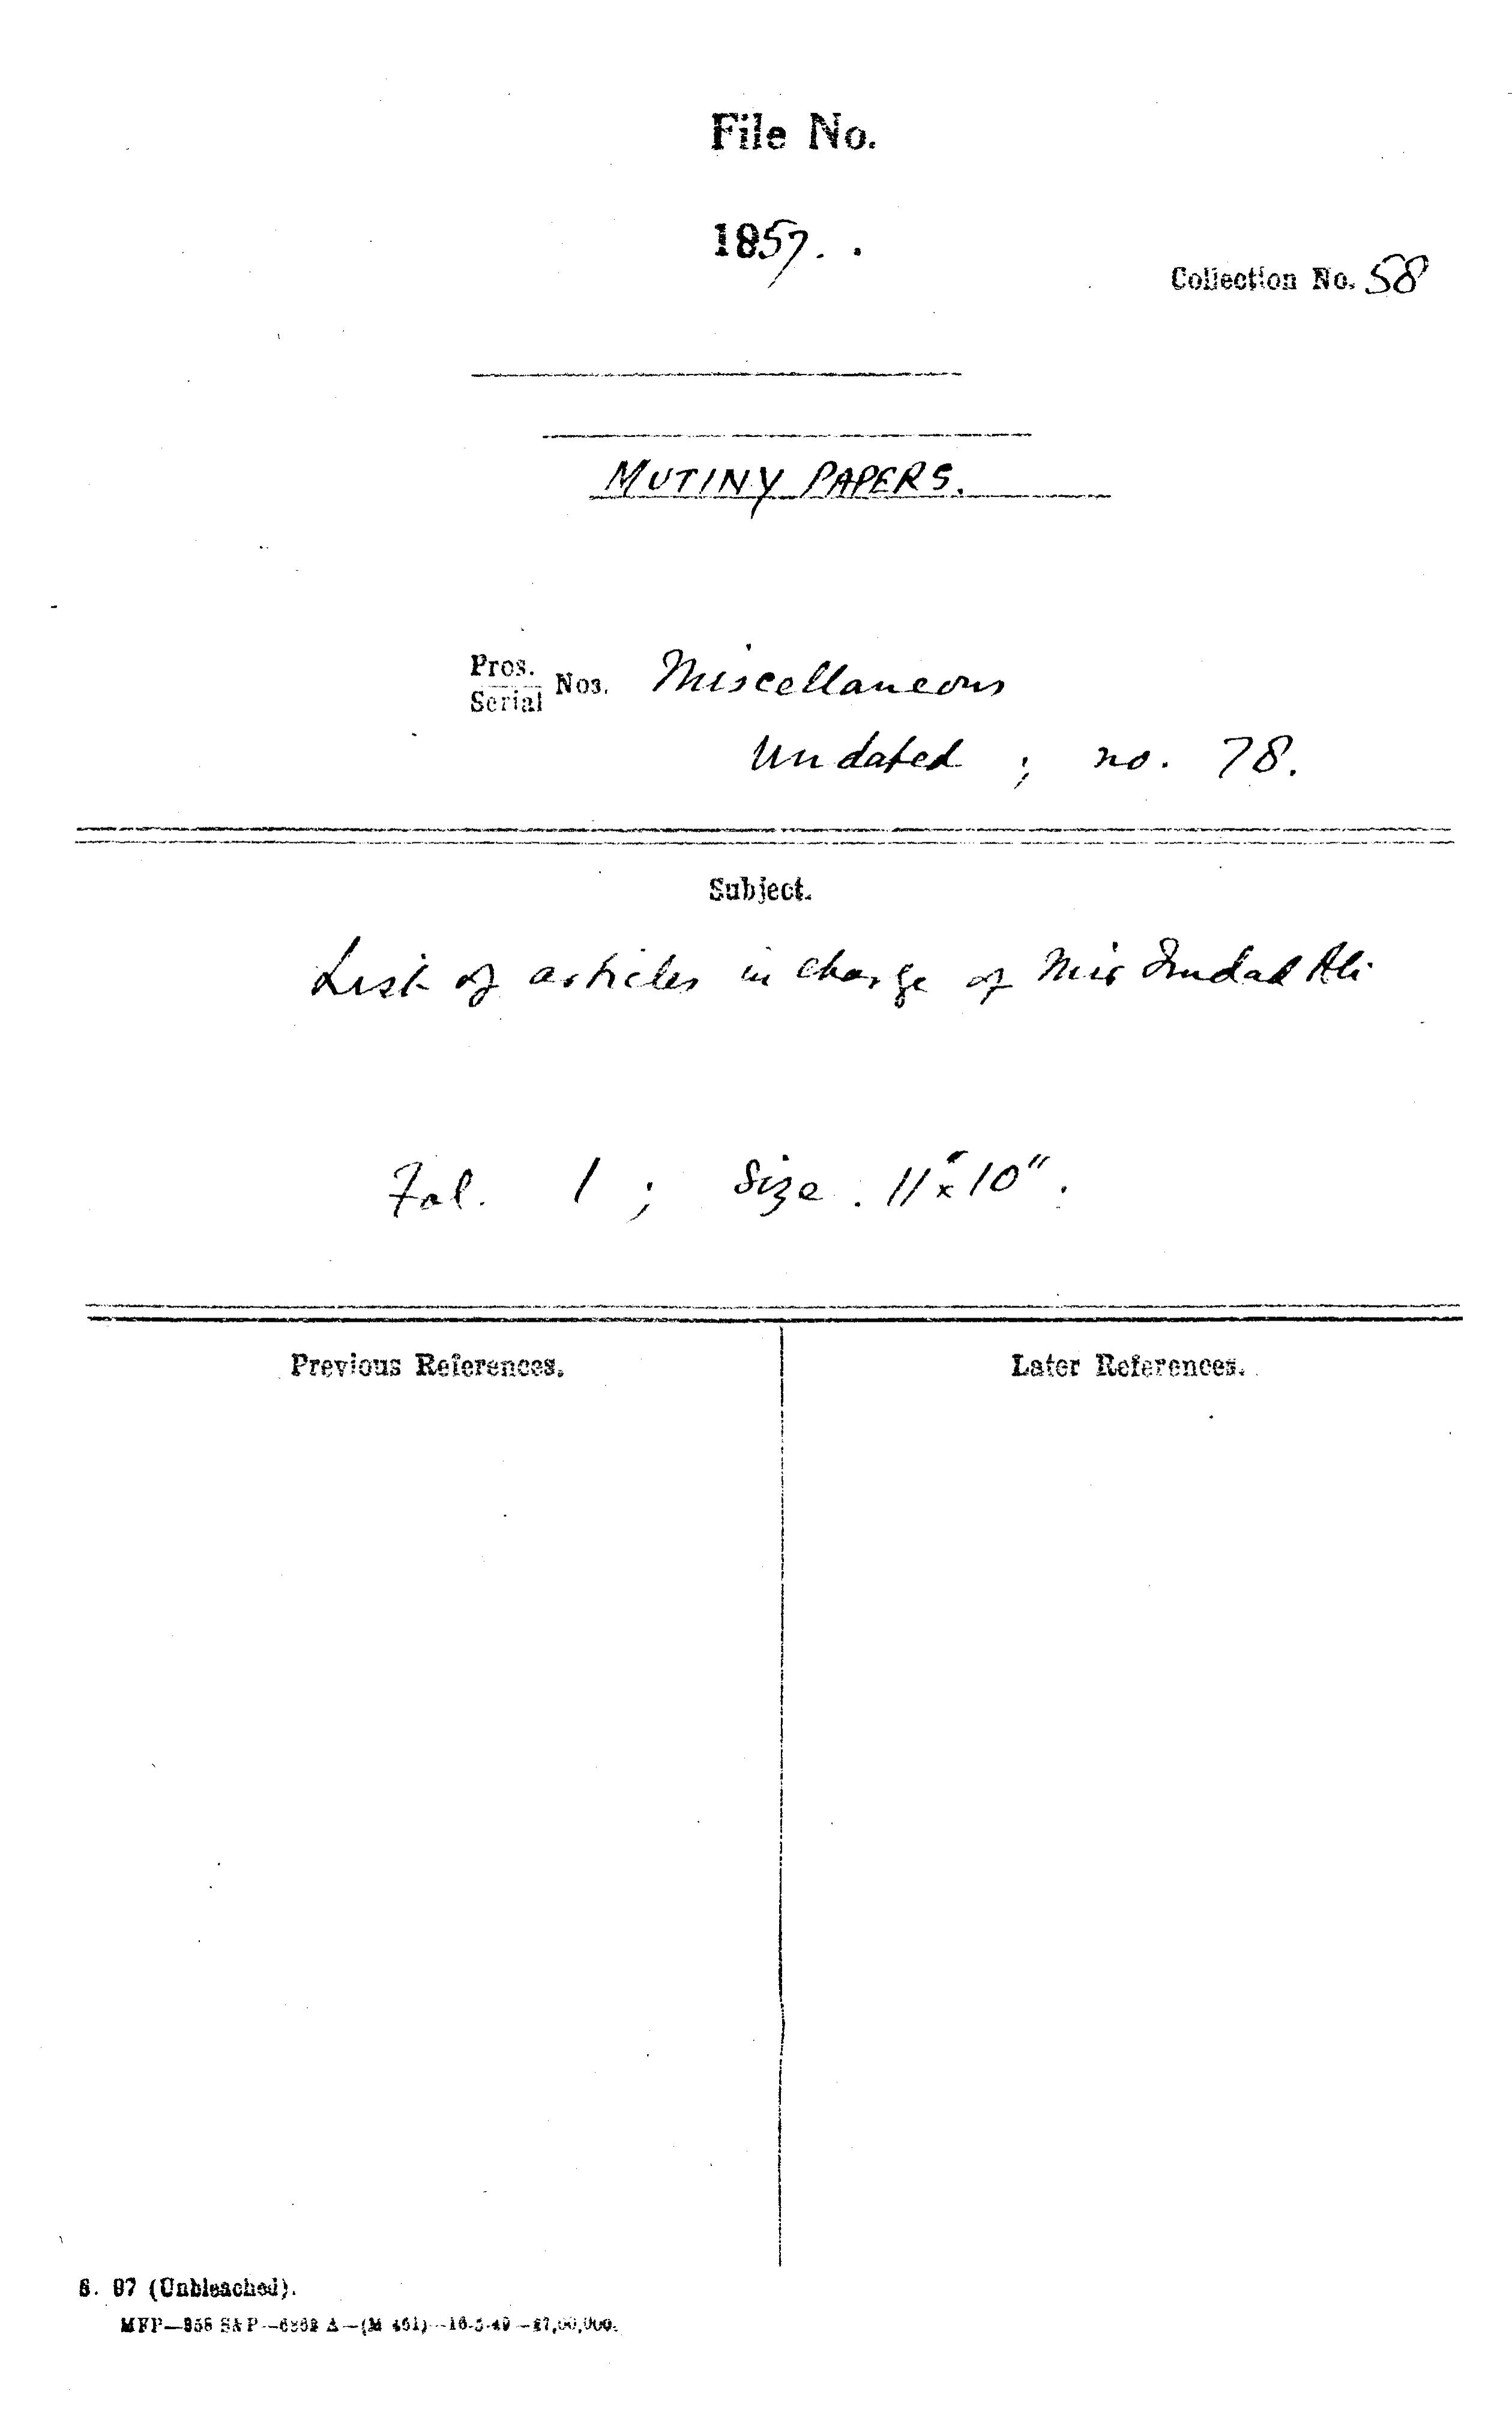 File No.
1857. .
Collection No. 58
MUTINY PAPERS.
Pros.
Serial Nos. Miscellaneous
Undated ; no. 78.
Subject.
List of articles in charge of Mir Imdad Ali
Fol. 1 ; Size . 11"x10".
Previous References. Later References.
S. 97 (Unbleached).
MFP—958 S&P